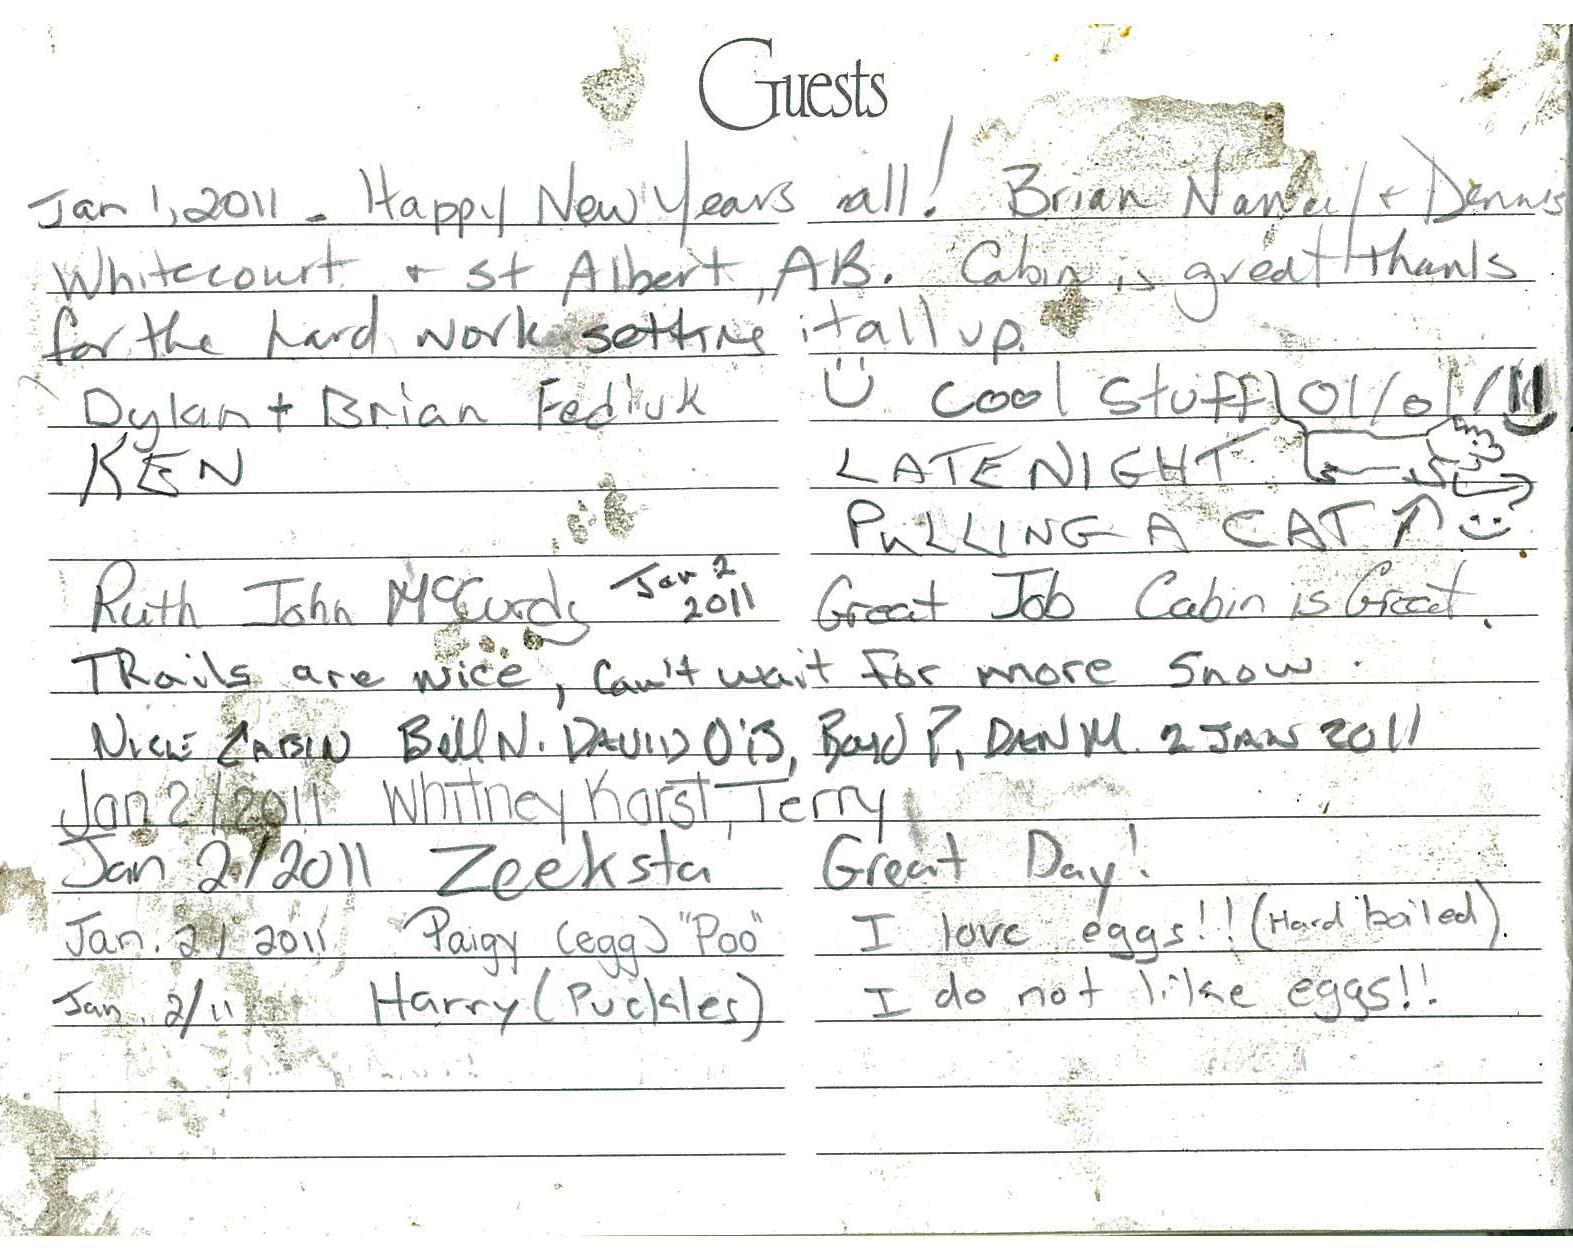 Guests
Jan 1, 2011 - Happy New Years all! Brian Nancy + Dennis
Whitecourt + St Albert, AB. Cabin is great thanks
for the hard work setting it all up.
Dylan + Brian Fediuk Cool Stuff 01/01/11
KEN LATE NIGHT
PULLING A CAT
Ruth John McCurdy Jan 2 2011 Great Job Cabin is Great.
TRails are nice, Can't wait for more Snow.
NICE CABIN Bill N. DAVID O'B, Boyd P, DAN M. 2 JAN 2011
Jan 2/2011 Whitney Karst, Terry
Jan 2/2011 Zeeksta Great Day!
Jan. 2/2011 Paigy (egg) "Poo" I love eggs!! (Hard boiled).
Jan. 2/11 Harry (Puckles) I do not like eggs!!